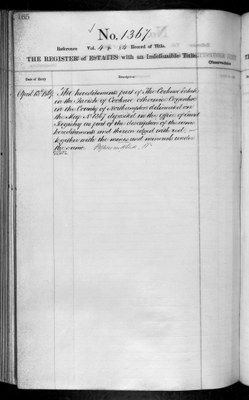 No. 1367
Reference Vol. 4 p. Record of Title.
THE REGISTER of ESTATES with an Indefeasible Title.
Date of Entry
Description
April 13th 1869
The hereditaments part of The Cooknoe Estate
in the Parish of Cooknoe otherwise Cogenhoe
in the County of Northampton delineated on
the Map No. 1367 deposited in the Office of Land
Registry as part of the description of the same
hereditaments and thereon edged with red,
together with the mines and minerals under
the same.